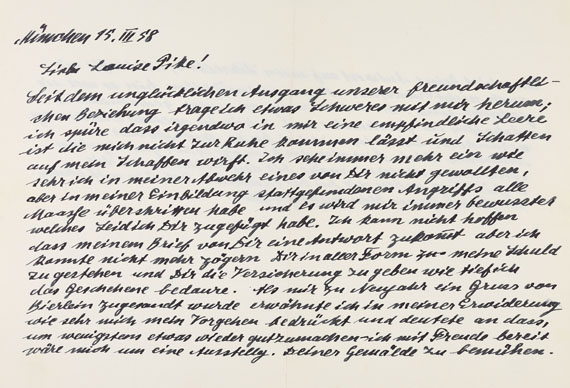 München 15. III 58
Liebe Louise Pike!
Seit dem unglücklichen Ausgang unserer freundschaftli-
chen Beziehung trage ich etwas Schweres mit mir herum;
ich spüre dass irgendwo in mir eine empfindliche Leere
ist die mich nicht zur Ruhe kommen lässt und Schatten
auf mein Schaffen wirft. Ich sehe immer mehr ein wie
sehr ich in meiner Abwehr eines von Dir nicht gewollten,
aber in meiner Einbildung stattgefundenen Angriffs alle
Maasse überschritten habe und es wird mir immer bewusster
welches Leid ich Dir zugefügt habe. Ich kann nicht hoffen
dass meinem Brief von Dir eine Antwort zukomt aber ich
konnte nicht mehr zögern Dir in aller Form meine Schuld
zu gestehen und Dir die Versicherung zu geben wie tief ich
das Geschehene bedaure. Als mir zu Neujahr ein Gruss von
Bierlein zugesandt wurde erwähnte ich in meiner Erwiderung
wie sehr mich mein Vorgehen bedrückt und deutete an dass,
um wenigstens etwas wieder gutzumachen ich mit Freude bereit
wäre mich um eine Ausstellg. Deiner Gemälde zu bemühen.